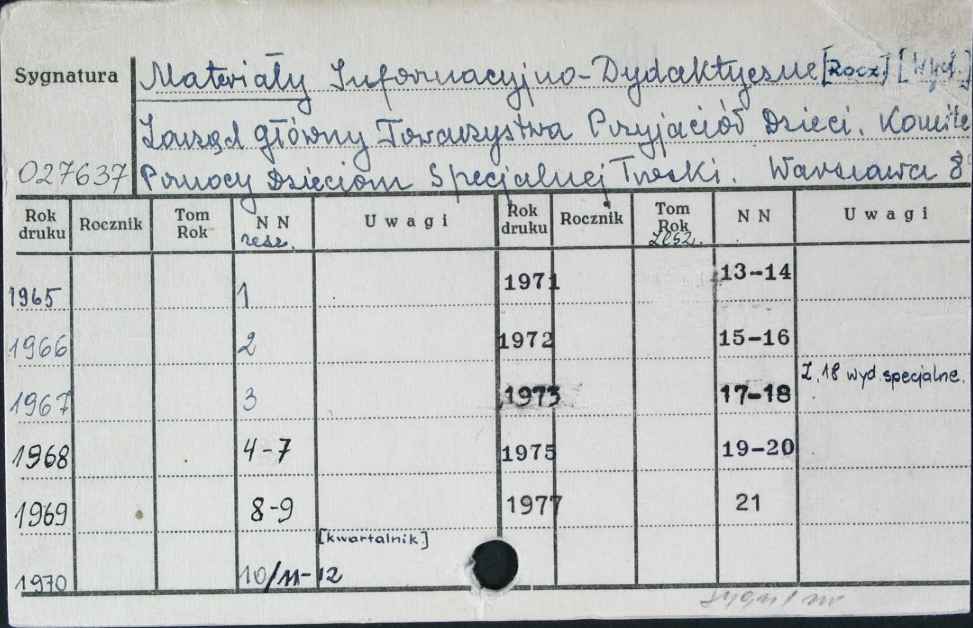 Sygnatura Materiały Informacyjno-Dydaktyczne [Rocz] [Wyd.]
Zarząd główny Towarzystwa Przyjaciół Dzieci. Komite
027637 Pomocy Dzieciom Specjalnej Troski. Warszawa 8
Rok druku Rocznik Tom Rok N N zesz. Uwagi Rok druku Rocznik Tom Rok Zesz. N N Uwagi
1965 1 1971 13-14
1966 2 1972 15-16
1967 3 1973 17-18 Z. 18 wyd specjalne.
1968 4-7 1975 19-20
1969 8-9 1977 21
[kwartalnik]
1970 10/11-12